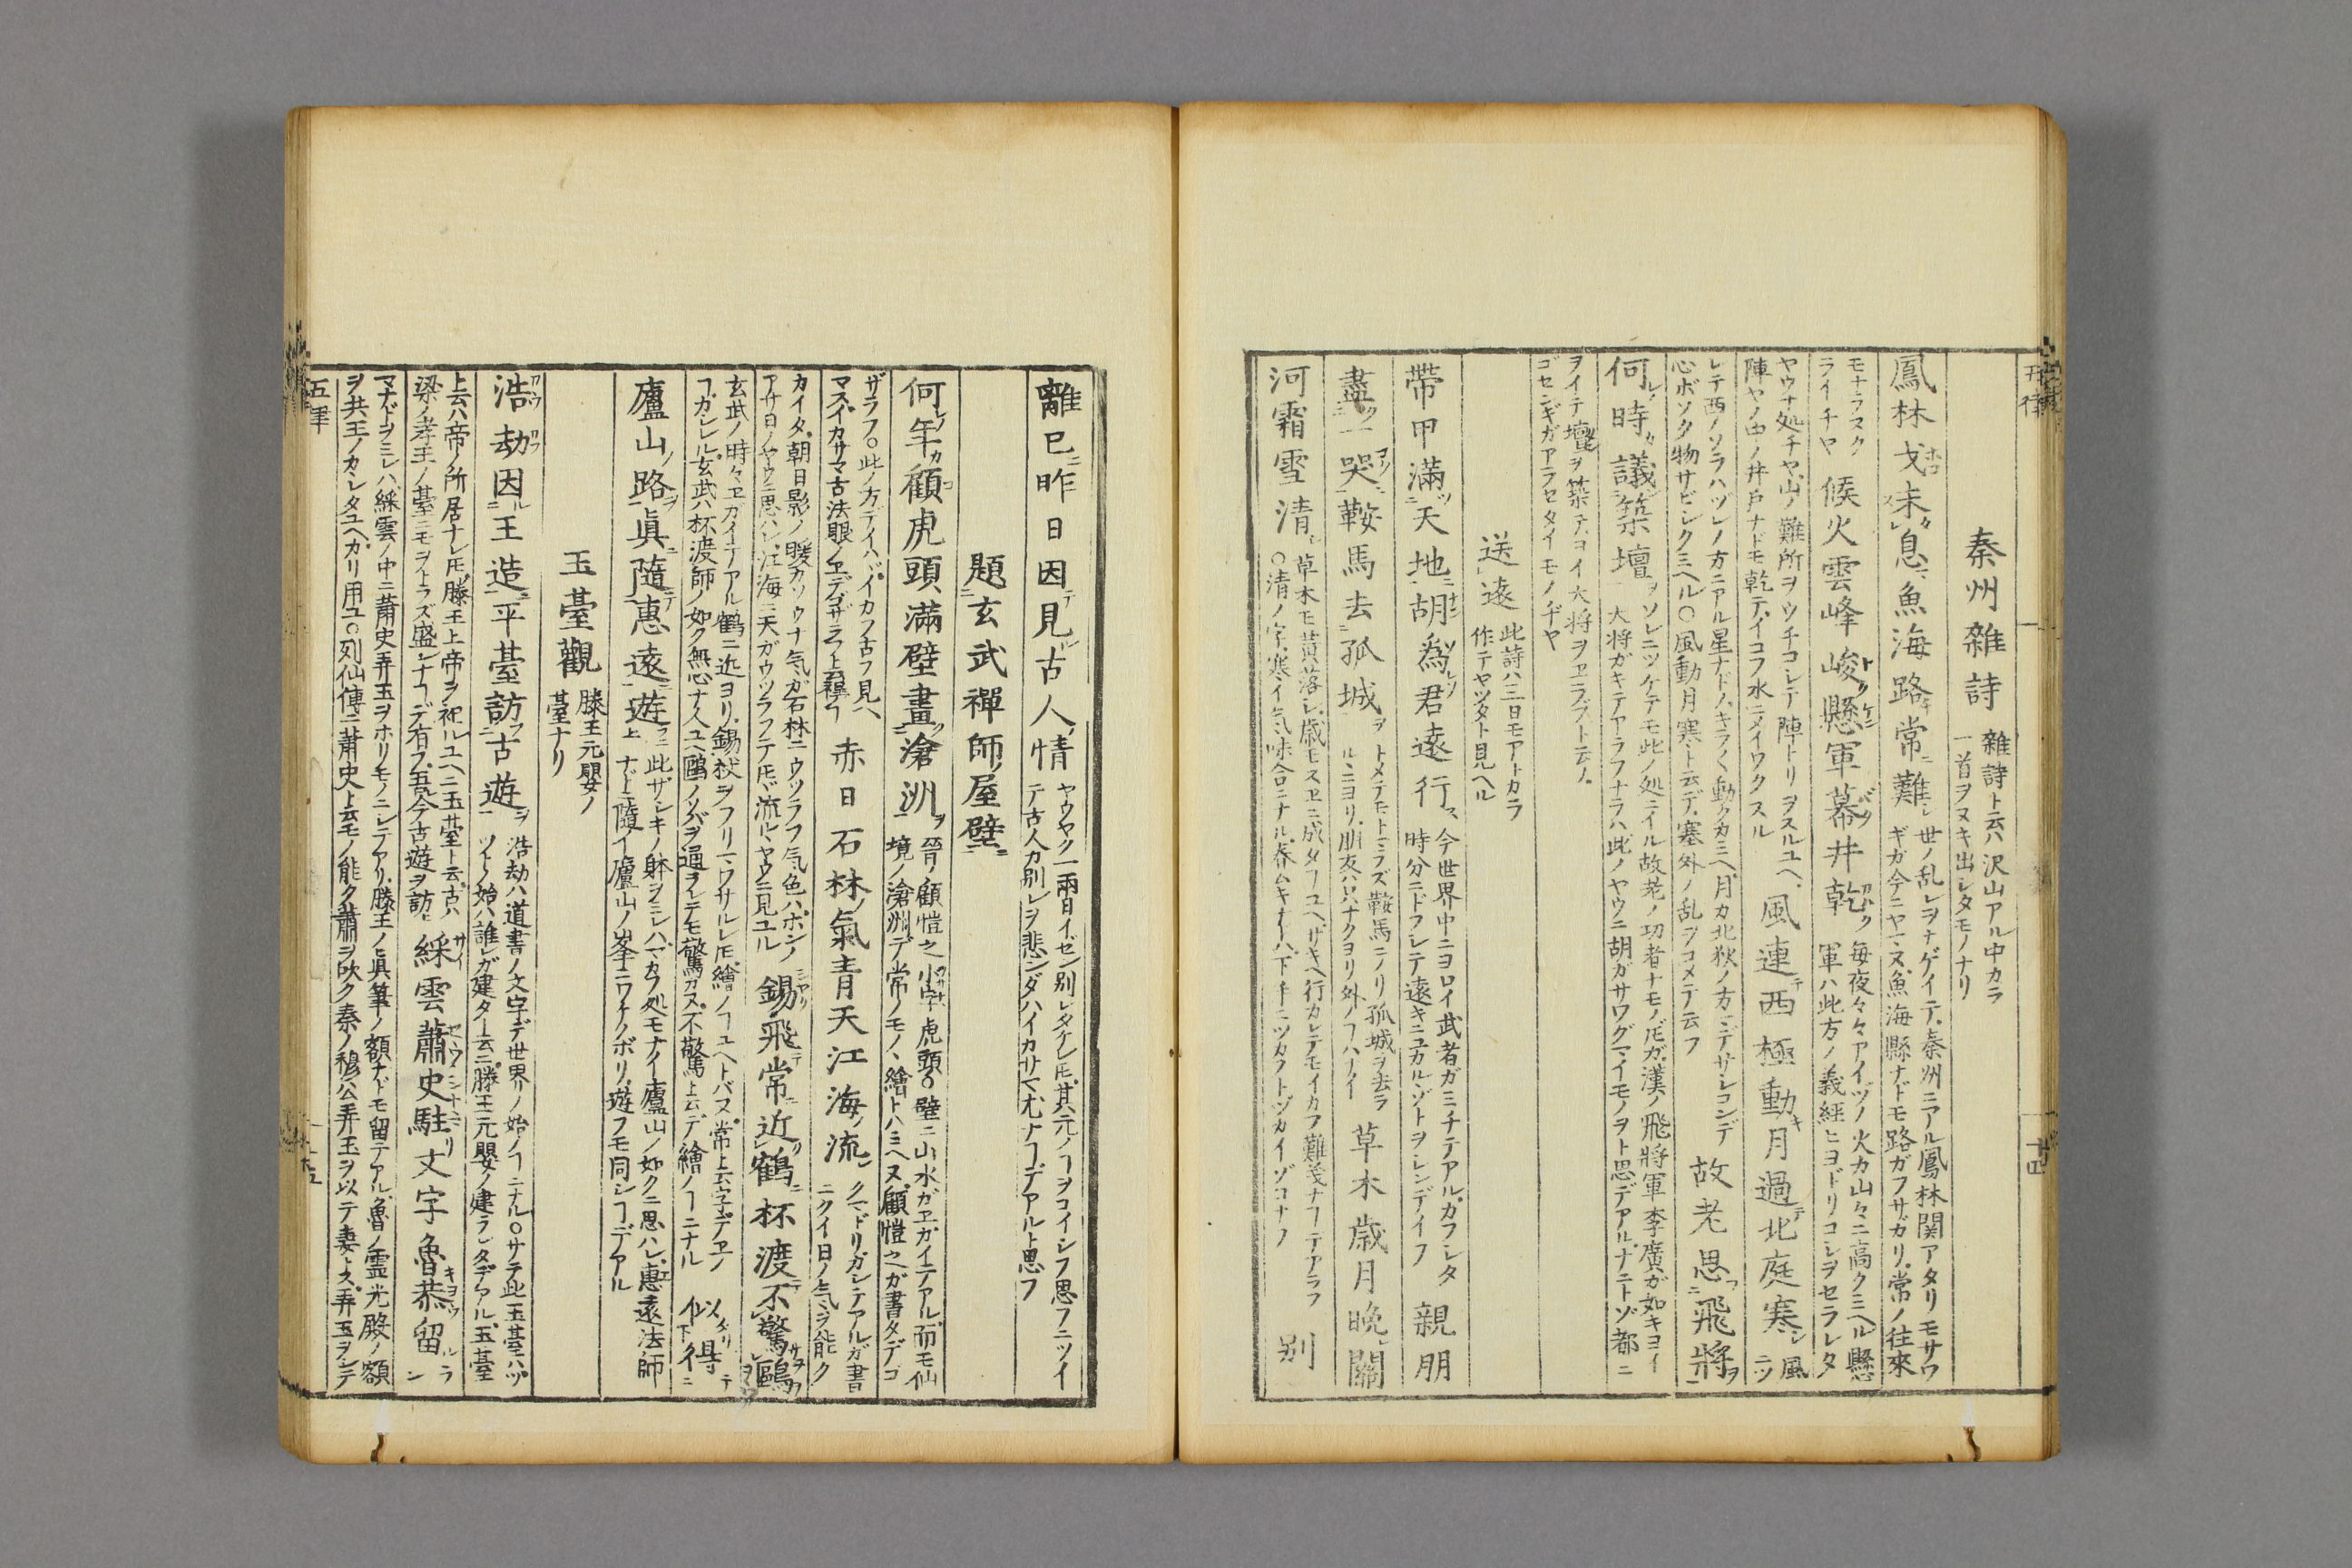 秦州雜詩 雜詩ト云ハ沢山アル中カラ
一首ヲヌキ出シタモノナリ
鳳林戈未息魚海路常難 世ノ乱レヲナゲイテ秦州ニアル鳳林関アタリモサワ
ギガ今ニヤマヌ魚海縣ナドモ路ガフサガリ常ノ往來
モナラヌク
ライチヤ
候火雲峰峻懸軍幕井乾 毎夜々々アイヅノ火カ山々ニ高クミヘル懸
軍ハ此方ノ義経ヒヨドリコシヲセラレタ
ヤウナ処チヤ山ノ難所ヲウチコシテ陣トリヲスルユヘ
陣ヤノ内ノ井戸ナドモ乾テイコフ水ニメイワクスル
風連西極動月過北庭寒 風
ニツ
レテ西ノソラハヅレノ方ニアル星ナドノキラ〱動クカミヘ月カ北狄ノ方マデサシコンデ
心ボソク物サビシクミヘル〇風動月寒ト云デ塞外ノ乱ヲコメテ云フ
故老思飛將
何時議築壇 ソレニツケテモ此ノ処ニイル故老ノ功者ナモノ𪜈ガ漢ノ飛將軍李廣ガ如キヨイ
大将ガキテヤラフナラハ此ノヤウニ胡ガサワグマイモノヲト思デアルナニトゾ都ニ
ヲイテ壇ヲ築テヨイ大将ヲヱラブト云ノ
ゴセンギガアラセタイモノヂヤ
送遠 此詩ハ三日モアトカラ
作テヤツタト見ヘル
帶甲滿天地胡爲君遠行 今世界中ニヨロイ武者ガミチテアルカフシタ
時分ニドフシテ遠キニユカルヽゾトヲシンデイフ
親朋
盡一哭鞍馬去孤城 トメテモトマラズ鞍馬ニノリ孤城ヲ去ラ
ルヽニヨリ朋友ハ只ナクヨリ外ノヿハナイ
草木歳月晩關
河霜雪清 草木モ黄落シ歳モスヱニ成タヿユヘサキヘ行カレテモイカフ難義ナヿテアラフ
〇清ノ字寒イ気味合ニナル
別
離已昨日因見古人情 ヤウヤク一兩日イゼン別レタケレ𪜈其元ノヿヲコイシフ思フニツイ
テ古人カ別レヲ悲ンダハイカサマ尤ナヿデアルト思フ
題玄武禪師屋壁
何年顧虎頭滿壁畫滄洲 晉ノ顧愷之小字虎頭〇壁ニ山水ガヱガイテアル而モ仙
境ノ滄洲デ常ノモノヽ繪トハミヘヌ顧愷之ガ書タデゴ
ザラフ〇此ノ方デイハバイカフ古フ見ヘ
マスイカサマ古法眼ノヱデゴザラフト云様ナヿ
赤日石林氣青天江海流 クマドリガシテアルガ書
ニクイ日ノ気ヲ能ク
カイタ朝日影ノ暖カソウナ気ガ石林ニウツラフ気色ハホンノ
アサ日ノヤウニ思ハレ江海ニ天ガウツラフテ𪜈流ルヽヤウニ見ユル
錫飛常近鶴杯渡不驚鷗
玄武ノ時々ヱガイテアル鶴ニ近ヨリ錫杖ヲフリマワサルレ𪜈繪ノヿユヘトバヌ常ト云字デヱノ
ヿガシレル玄武ハ杯渡師ノ如ク無心ナ人ユヘ鷗ノソバヲ通ヲレテモ驚カヌ不驚ト云デ繪ノヿニナル
似得
廬山路眞隨惠遠遊 此ザシキノ躰ヲミレバマカフ処モナイ廬山ノ如クニ思ハレ惠遠法師
ナドニ隨イ廬山ノ峯ニワケノボリ遊フモ同シヿデアル
玉臺觀 滕王元嬰ノ
臺ナリ
浩劫因王造平臺訪古遊 浩劫ハ道書ノ文字デ世界ノ始ノヿニナル〇サテ此玉臺ハヅ
ツト始ハ誰レガ建タト云ニ滕王元嬰ノ建ラレタデアル玉臺
ト云ハ帝ノ所居ナレ𪜈滕王上帝ヲ祀ルユヘニ玉臺ト云古ハ
梁ノ孝王ノ臺ニモヲトラズ盛ンナヿデ有フ吾今古遊ヲ訪ヒ
綵雲蕭史駐文字魯恭留
マナドヲミレハ綵雲ノ中ニ蕭史弄玉ヲホリモノニシテアリ滕王ノヒ具筆ノ額ナドモ留テアル魯ノ霊光殿ノ額
ヲ共王ノカレタユヘカリ用ユ〇列仙傳ニ蕭史ト云モノ能ク蕭ヲ吹ク秦ノ穆公弄玉ヲ以テ妻トス弄玉ヲシテ